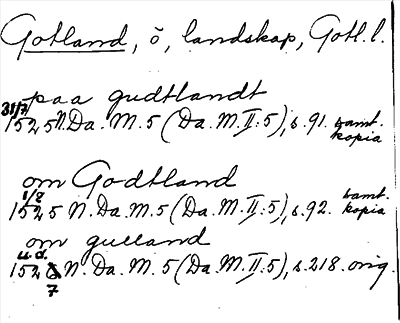 Gotland, ö, landskap, Gotl. l.
paa gudtlandt
31/7 1525 N. Da. M. 5 (Da. M. II:5), s. 91. samt. kopia
om Godtland
1/8 1525 N. Da. M. 5 (Da. M. II:5), s. 92. samt. kopia
om gulland
u.d. 1527 N. Da. M. 5 (Da. M. II:5), s. 218. orig.